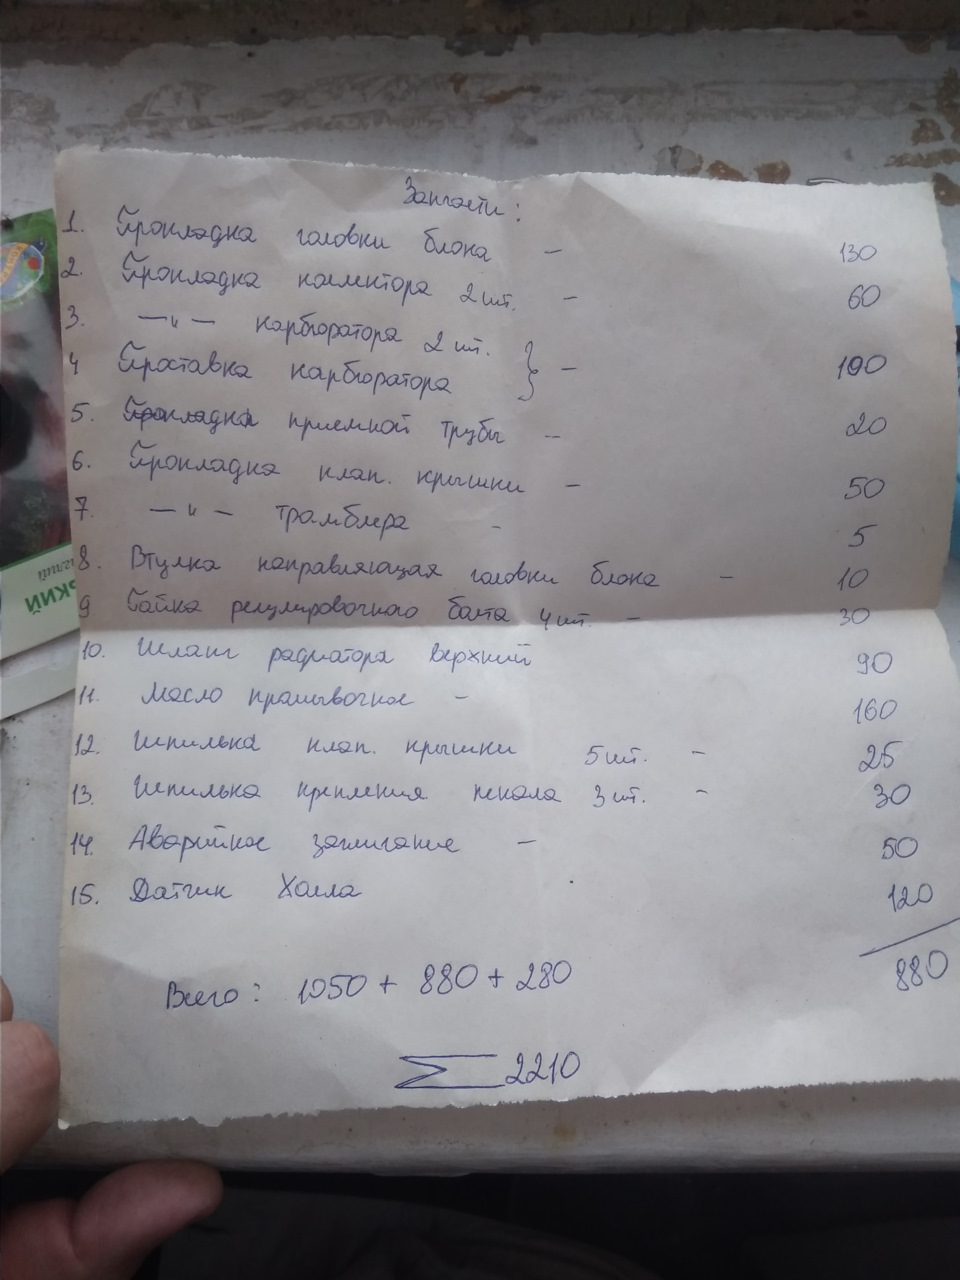 Запчасти:
1. Прокладка головки блока – 130
2. Прокладка коллектора 2 шт. – 60
3. —"— карбюратора 2 шт.
4 Проставка карбюратора } – 100
5. Прокладка приемной трубы – 20
6. Прокладка клап. крышки – 50
7. —"— трамблера - 5
8. Втулка направляющая головки блока – 10
9 Гайка регулировочного болта 4 шт. – 30
10. Шланг радиатора верхний 90
11. Масло промывочное – 160
12. Шпилька клап. крышки 5 шт. – 25
13. Шпилька крепления пенала 3 шт. – 30
14. Аварийное зажигание – 50
15. Датчик Холла 120
880
Всего: 1050 + 880 + 280
Σ 2210
ЬКИЙ